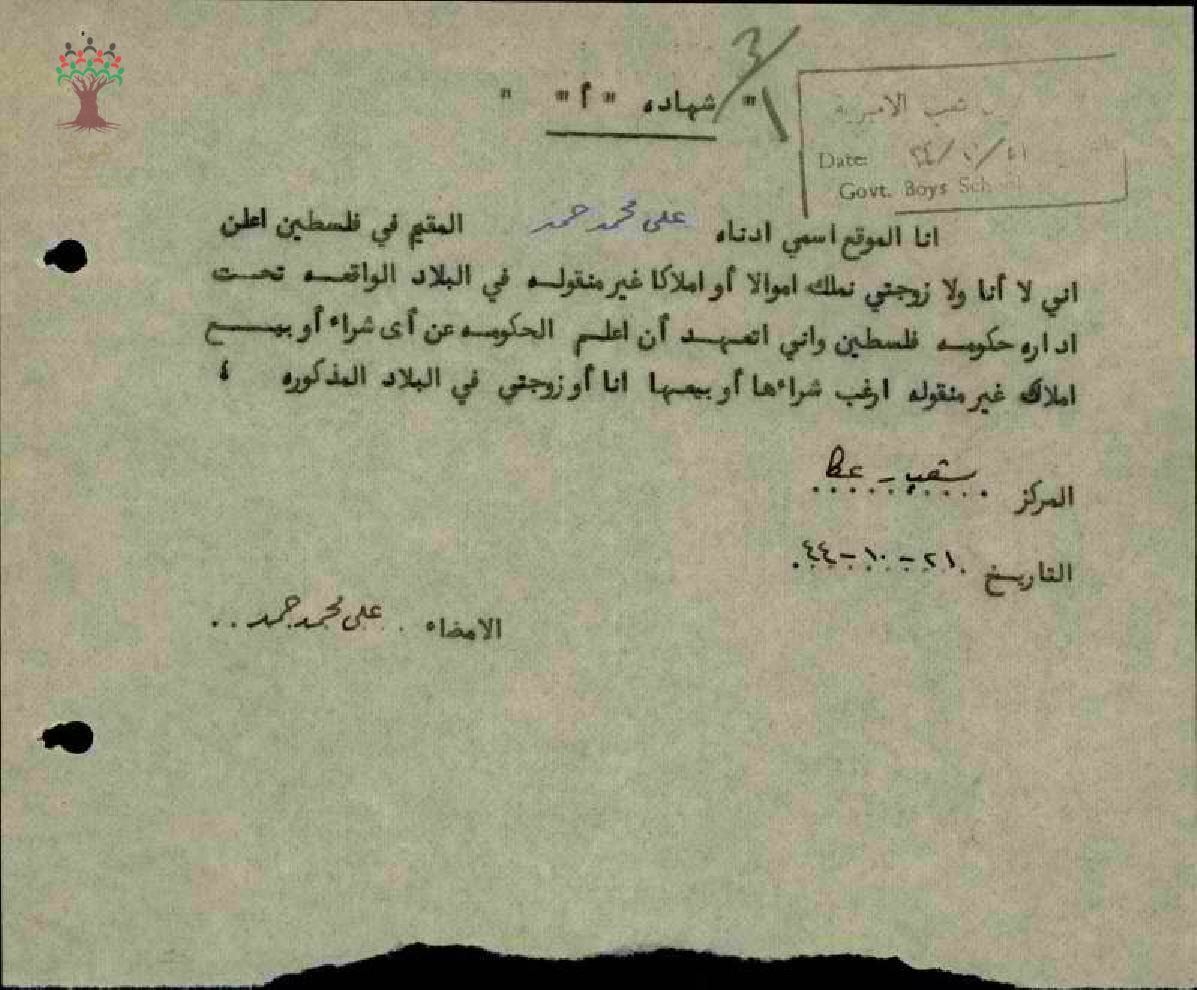 " شهاده " أ " "
شعب الاميرية
Date:
Govt. Boys School
انا الموقع اسمي ادناه على محمد حمد المقيم في فلسطين اعلن
اني لا أنا ولا زوجتي نملك اموالا أو املاكا غير منقولـه في البلاد الواقعـه تحـت
اداره حكومـه فلسطين واني اتعهـد أن اعلـم الحكومـه عن أى شراء أو بيـع
املاك غير منقوله ارغب شراءها أو بيعها انا أو زوجتي في البلاد المذكوره ،
المركز شعب - عكا
التاريخ ٢١-١٠-٤٤
الامضاء على محمد حمد